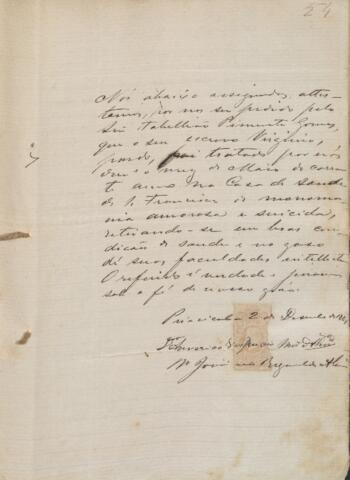 24
Nós abaixo assignados, attes-
tamos, por nos ser pedido pelo
Snr Tabellião Pimenta Gomes,
que o seu escravo Virginio,
pardo, foi tratado por nós
o mez de Maio do corren-
te anno na Casa de Saude
de S. Francisco de monoma-
nia amorosa e suicida,
retirando-se em boas con-
dicão de saude e no goso
de suas faculdades intellect
O referido é verdade e
sob a fé de nosso gráu
Piracicaba 2 de
Dr José